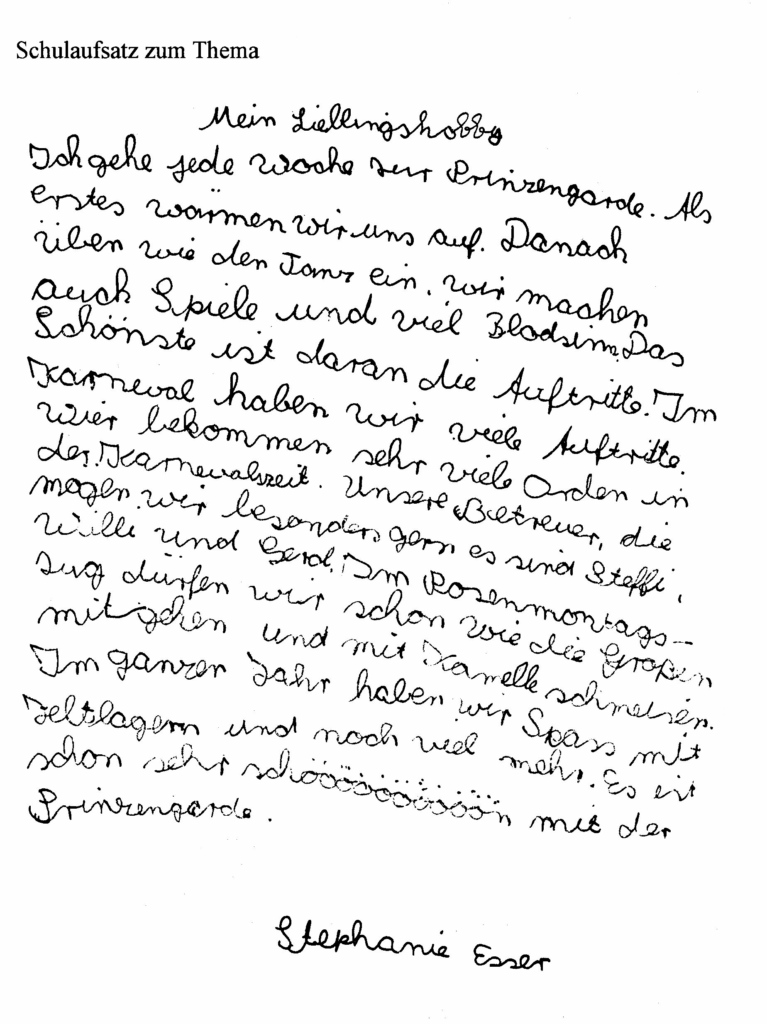 Schulaufsatz zum Thema
Mein Lieblingshobby
Ich gehe jede woche zur Prinzengarde. Als
erstes wärmen wir uns auf. Danach
üben wie den Tanz ein. wir machen
auch Spiele und viel Blödsinn. Das
Schönste ist daran die Auftritte. Im
Karneval haben wir viele Auftritte.
Wier bekommen sehr viele Orden in
der Karnevalszeit. Unsere Betreuer, die
mögen wir besonders gern es sind Steffi,
Willi und Gerd. Im Rosenmontags-
zug dürfen wir schon wie die Großen
mitgehen und mit Kamelle schmeisen.
Im ganzen Jahr haben wir Spass mit
Zeltlagern und noch viel mehr. Es ist
schon sehr schöööööööööön mit der
Prinzengarde.
Stephanie Esser